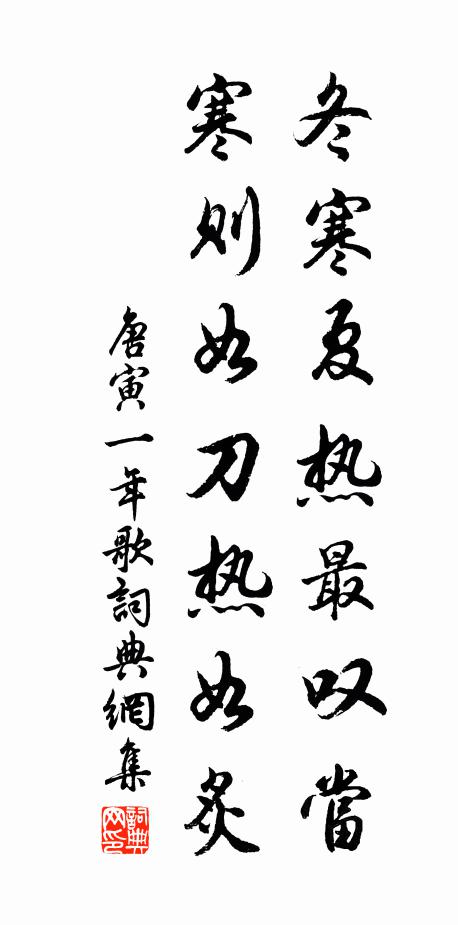 冬寒夏热最叹當
寒则如刀热如炙
唐寅一年歌詞典網集
詞典网印